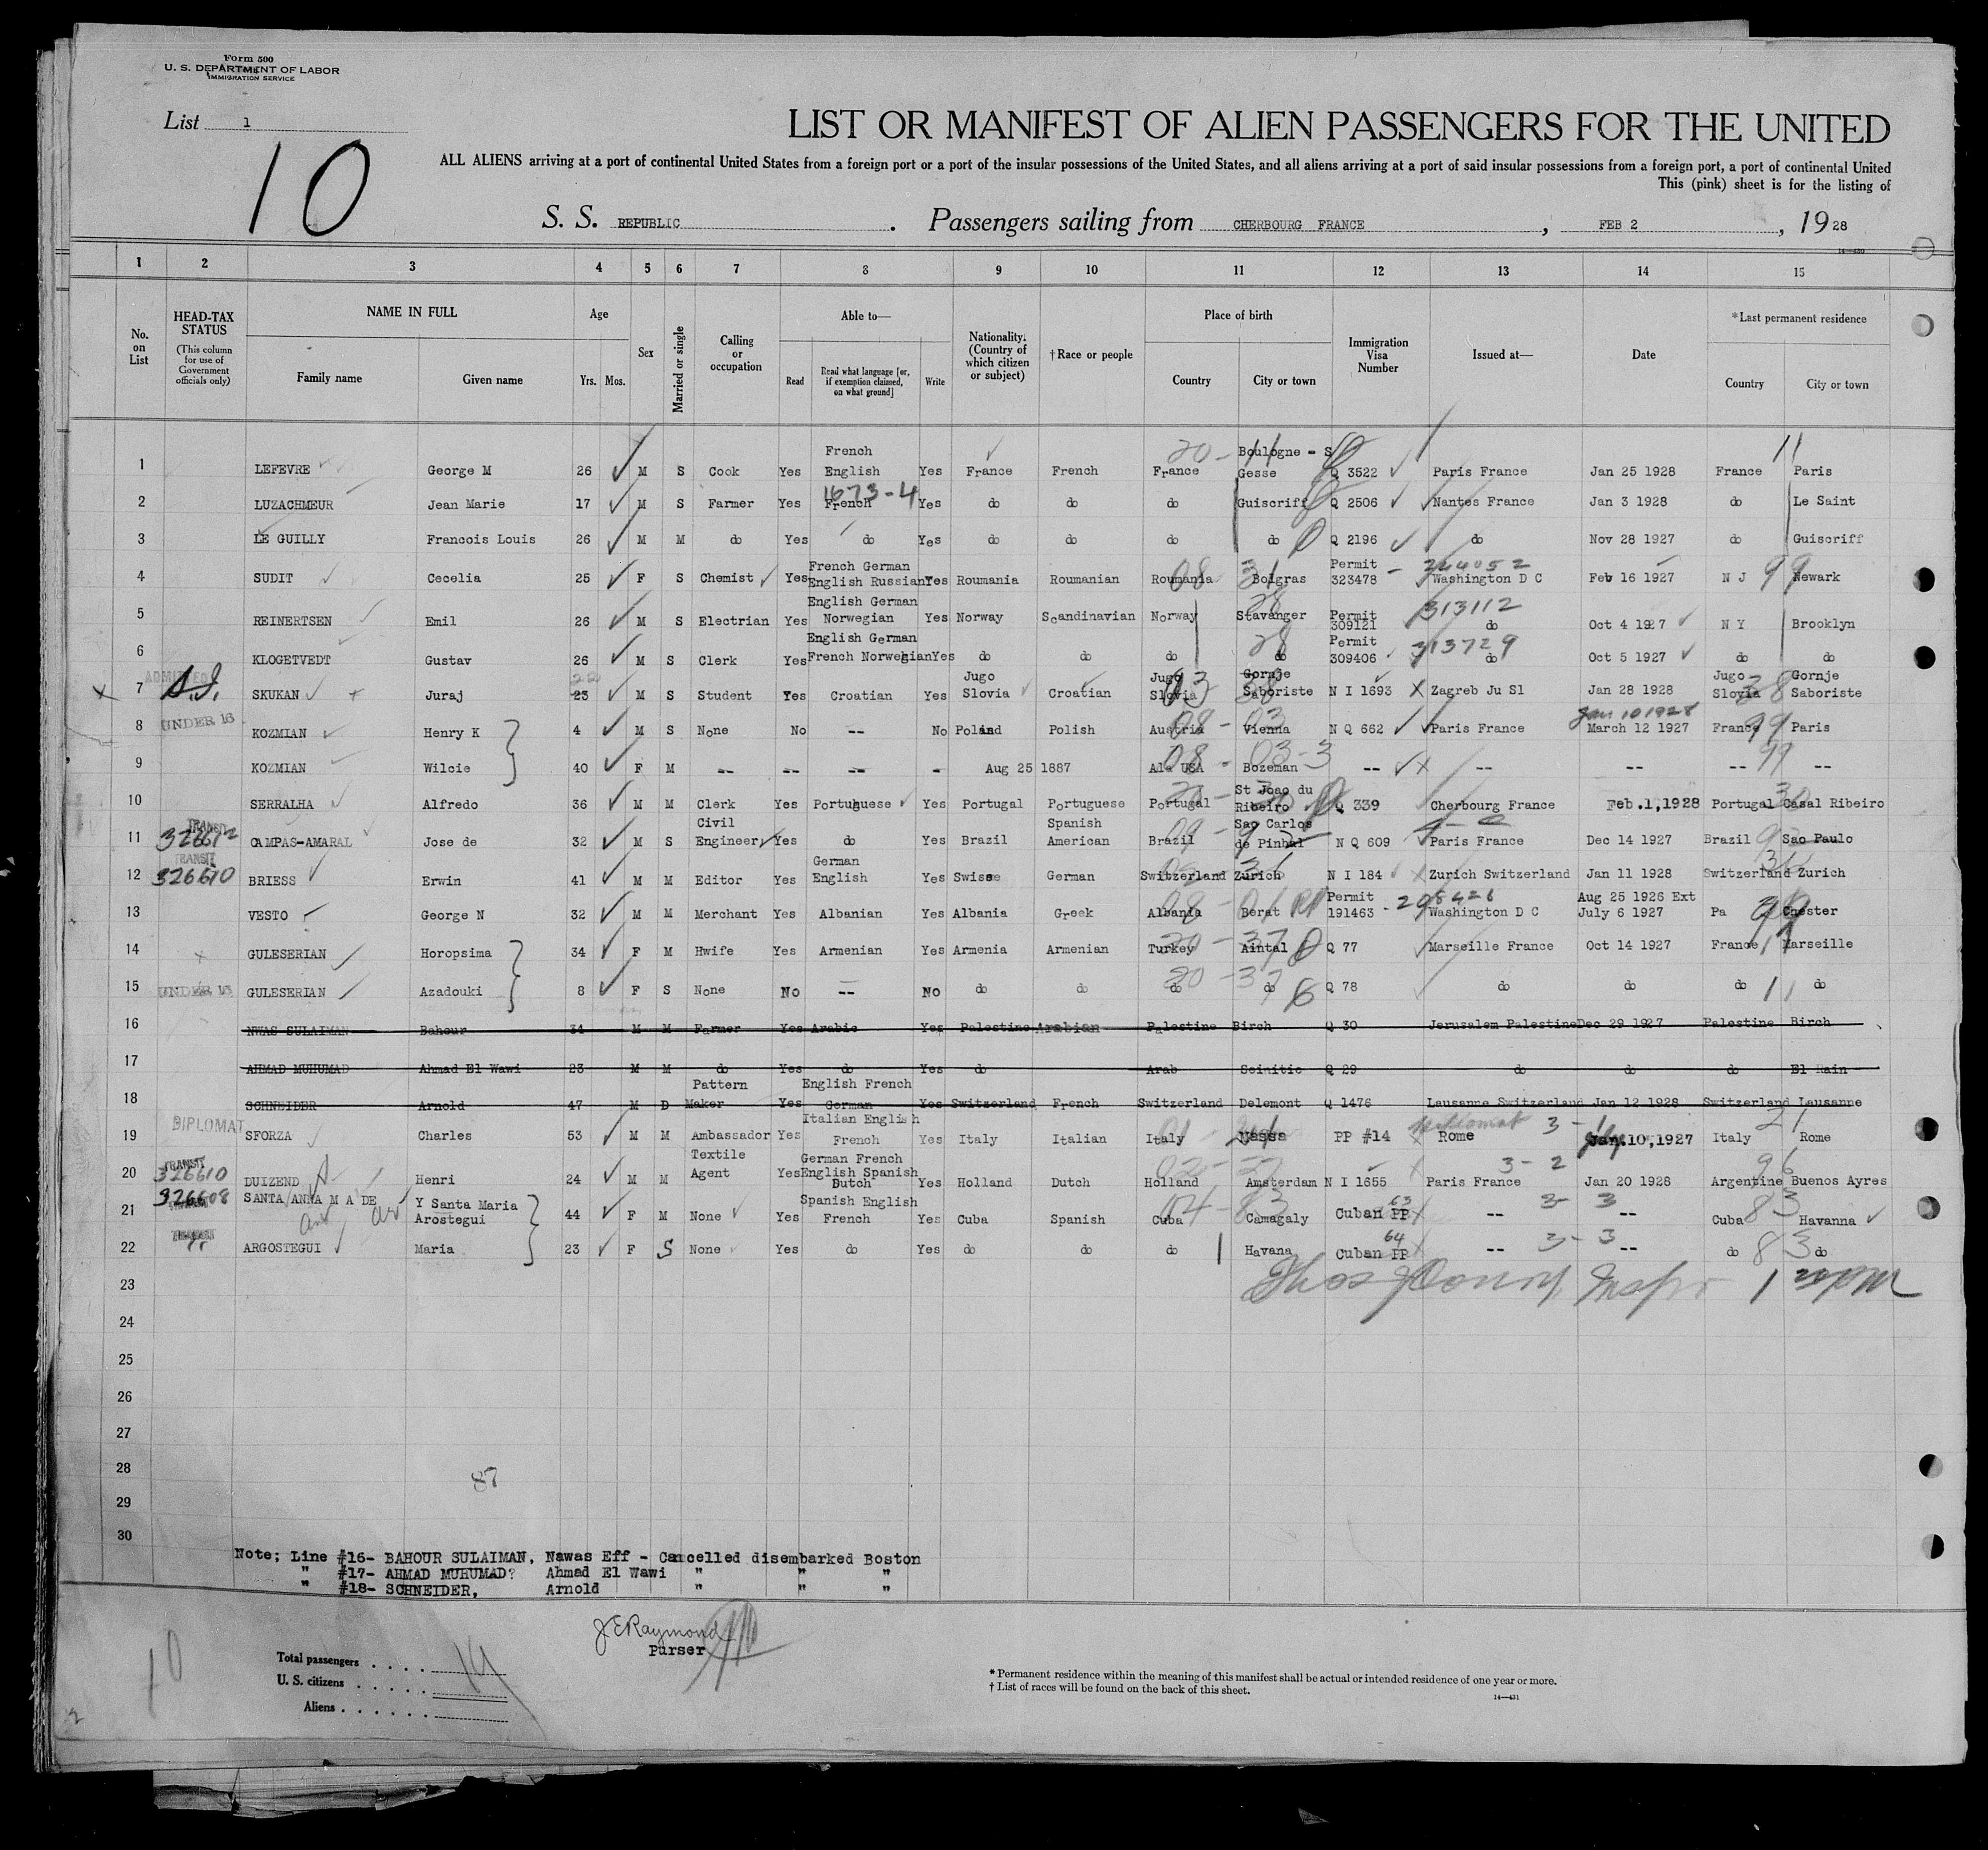 Form 500
U. S. DEPARTMENT OF LABOR
IMMIGRATION SERVICE
List 1
10
LIST OR MANIFEST OF ALIEN PASSENGERS FOR THE UNITED
ALL ALIENS arriving at a port of continental United States from a foreign port or a port of the insular possessions of the United States, and all aliens arriving at a port of said insular possessions from a foreign port, a port of continental United
This (pink) sheet is for the listing of
S. S. REPUBLIC. Passengers sailing from CHERBOURG FRANCE, FEB 2, 1928
14—430
1 2 3 4 5 6 7 8 9 10 11 12 13 14 15
No. on List
HEAD-TAX STATUS (This column for use of Government officials only)
NAME IN FULL Family name Given name
Age Yrs. Mos.
Sex
Married or single
Calling or occupation
Able to— Read Read what language [or, if exemption claimed, on what ground] Write
Nationality. (Country of which citizen or subject)
†Race or people
Place of birth Country City or town
Immigration Visa Number
Issued at—
Date
*Last permanent residence Country City or town
1 LEFEVRE George M 26 M S Cook Yes French English Yes France French France Boulogne - S Gesse Q 3522 Paris France Jan 25 1928 France Paris
2 LUZACHMEUR Jean Marie 17 M S Farmer Yes 1673-4 French Yes do do do Guiscriff Q 2506 Nantes France Jan 3 1928 do Le Saint
3 LE GUILLY Francois Louis 26 M M do Yes do Yes do do do do Q 2196 do Nov 28 1927 do Guiscriff
4 SUDIT Cecelia 25 F S Chemist Yes French German English Russian Yes Roumania Roumanian Roumania Bolgras Permit 323478 - 244052 Washington D C Feb 16 1927 N J 99 Newark
5 REINERTSEN Emil 26 M S Electrian Yes English German Norwegian Yes Norway Scandinavian Norway Stavanger 28 Permit 309121 313112 do Oct 4 1927 N Y Brooklyn
6 KLOGETVEDT Gustav 26 M S Clerk Yes English German French Norwegian Yes do do do do 28 Permit 309406 313729 do Oct 5 1927 do do
7 ADMITTED S.I. SKUKAN Juraj 23 M S Student Yes Croatian Yes Jugo Slovia Croatian Jugo Slovia Gornje Saboriste N I 1693 Zagreb Ju Sl Jan 28 1928 Jugo Slovia Gornje Saboriste
8 UNDER 16 KOZMIAN Henry K 4 M S None No -- No Poland Polish Austria Vienna N Q 662 Paris France Jan 10 1928 March 12 1927 France 99 Paris
9 KOZMIAN Wilcie 40 F M -- -- -- - Aug 25 1887 Ala USA Bozeman -- -- -- -- 99 --
10 SERRALHA Alfredo 36 M M Clerk Yes Portuguese Yes Portugal Portuguese Portugal St Joao du Ribeiro Q 339 Cherbourg France Feb.1,1928 Portugal Casal Ribeiro
11 TRANSIT 326612 CAMPAS-AMARAL Jose de 32 M S Civil Engineer Yes do Yes Brazil Spanish American Brazil Sao Carlos de Pinhal N Q 609 Paris France Dec 14 1927 Brazil Sao Paulo
12 TRANSIT 326610 BRIESS Erwin 41 M M Editor Yes German English Yes Swisse German Switzerland Zurich N I 184 Zurich Switzerland Jan 11 1928 Switzerland Zurich
13 VESTO George N 32 M M Merchant Yes Albanian Yes Albania Greek Albania Berat Permit 191463 - 208426 Washington D C Aug 25 1926 Ext July 6 1927 Pa 99 Chester
14 GULESERIAN Horopsima 34 F M Hwife Yes Armenian Yes Armenia Armenian Turkey Aintal Q 77 Marseille France Oct 14 1927 France Marseille
15 UNDER 16 GULESERIAN Azadouki 8 F S None No -- No do do do do Q 78 do do do do
16 NWAS SULAIMAN Bahour 34 M M Farmer Yes Arabic Yes Palestine Arabian Palestine Birch Q 30 Jerusalem Palestine Dec 29 1927 Palestine Birch
17 AHMAD MUHUMAD Ahmad El Wawi 23 M M do Yes do Yes do Arab Seinitic Q 29 do do do El Rain
18 SCHNEIDER Arnold 47 M D Pattern Maker Yes English French German Yes Switzerland French Switzerland Delemont Q 1476 Lausanne Switzerland Jan 12 1928 Switzerland Lausanne
19 DIPLOMAT SFORZA Charles 53 M M Ambassador Yes Italian English French Yes Italy Italian Italy Massa PP #14 Diplomat 3- Rome Jan.10,1927 Italy 21 Rome
20 TRANSIT 326610 DUIZEND Henri 24 M M Textile Agent Yes German French English Spanish Dutch Yes Holland Dutch Holland Amsterdam N I 1655 3-2 Paris France Jan 20 1928 96 Argentine Buenos Ayres
21 326608 SANTA ANNA M A DE Y Santa Maria Arostegui 44 F M None Yes Spanish English French Yes Cuba Spanish Cuba Camagaly 63 Cuban PP -- 3-3 -- Cuba 83 Havanna
22 TRANSIT ARGOSTEGUI Maria 23 F S None Yes do Yes do do do Havana 64 Cuban PP -- 3-3 -- do 83 do
23
24
25
26
27
28
87
29
30
Note; Line #16- BAHOUR SULAIMAN, Nawas Eff - Cancelled disembarked Boston
" #17- AHMAD MUHUMAD? Ahmad El Wawi " " "
" #18- SCHNEIDER, Arnold " " "
J E Raymond
Purser
10
Total passengers
U. S. citizens
Aliens
* Permanent residence within the meaning of this manifest shall be actual or intended residence of one year or more.
† List of races will be found on the back of this sheet.
14—431